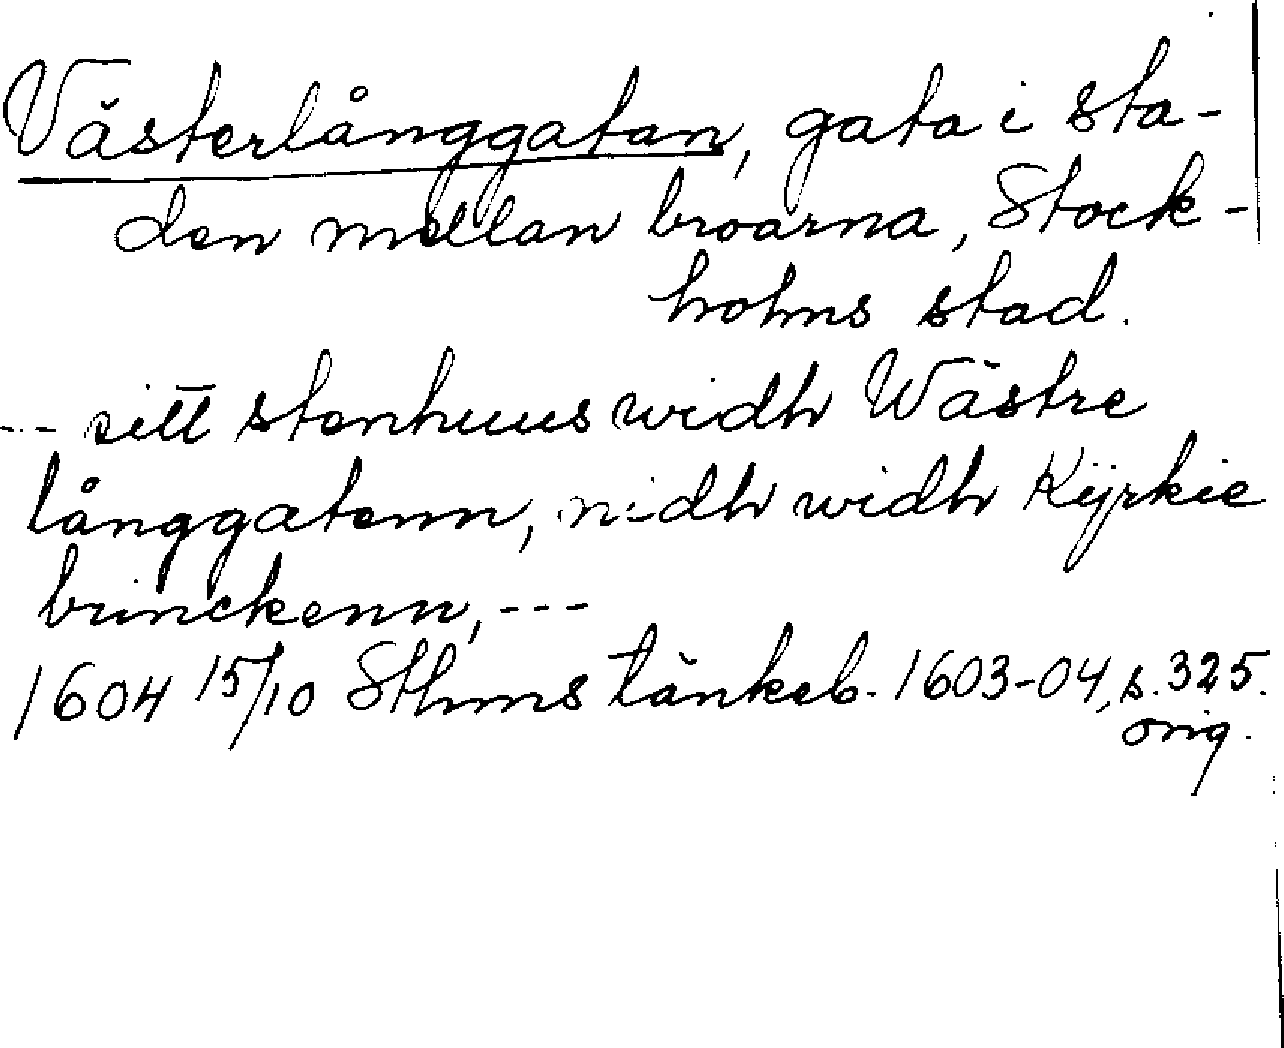 Västerlånggatan, gata i sta-
den mellan broarna, Stock-
holms stad.
--- sitt stenhuus widh Wästre
långgatenn, nidh widh Kÿrkie
brinckenn, ---
1604 15/10 Sthms tänkeb. 1603-04, s. 325.
orig.